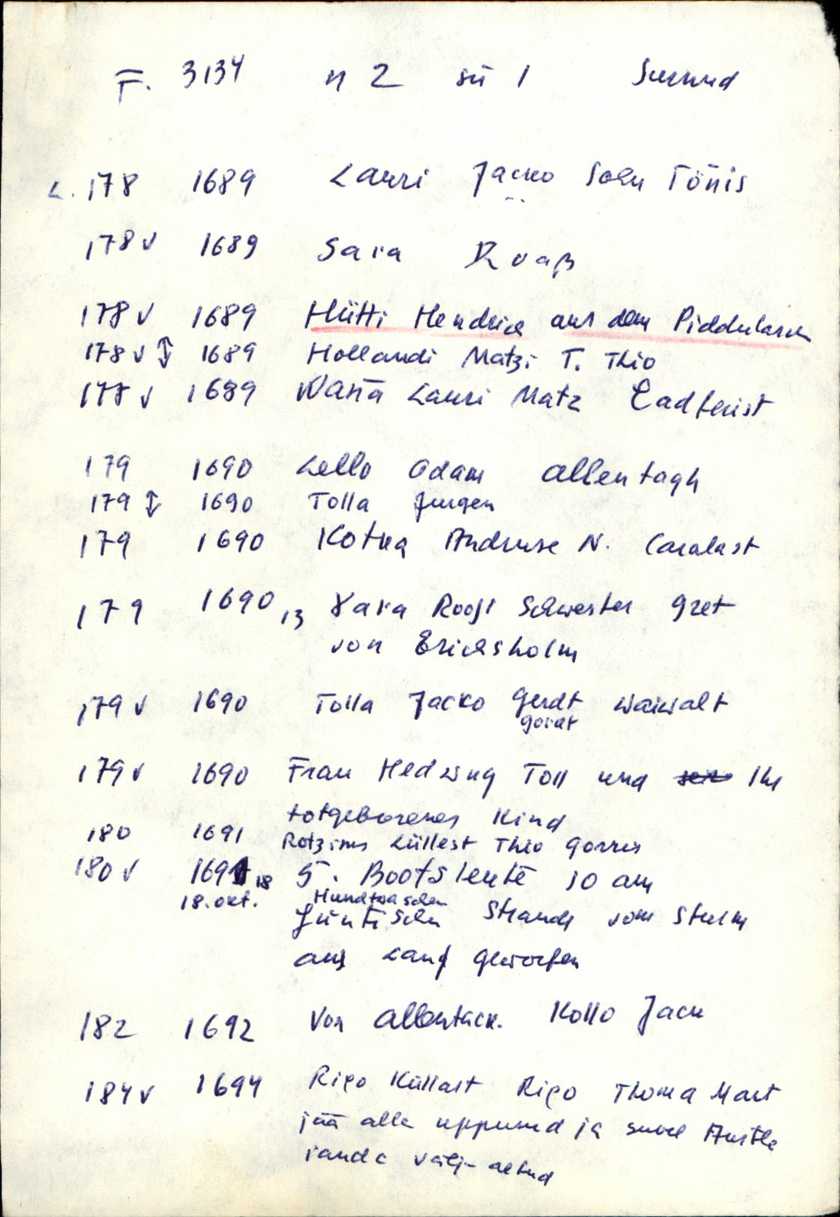 F. 3134 n 2 sü 1 Surnud
L. 178 1689 Lauri Jacko Sohn Tönis
178 v 1689 Sara Roaß
178 v 1689 Hütti Hendrick aus dem Piddulaschen
178 v ↕ 1689 Hollandi Matzi T. Thio
177 v 1689 Wana Lauri Matz
179 1690 Lello Adam Allentagh
179 ↕ 1690 Tolla Jurgen
179 1690 Kotka Andruse N. Caralast
179 1690 13 Roosi Schwester Gret
von Erichsholm
179 v 1690 Tolla Jacko Gerdt
179 v 1690 Frau Hedwug Toll und Ihr
totgeborenes Kind
180 1691 Küllest Thio
180 v 1691 18 5. Bootsleute so am
18. okt. Hundwaschen
Strande vom Sturm
aus Land geworfen
182 1692 Von Allentack. Kollo Jack
184 v 1694 Rigo Küllast Rigo Thoma Mart
jää alla uppunud ja suure
välja aetud